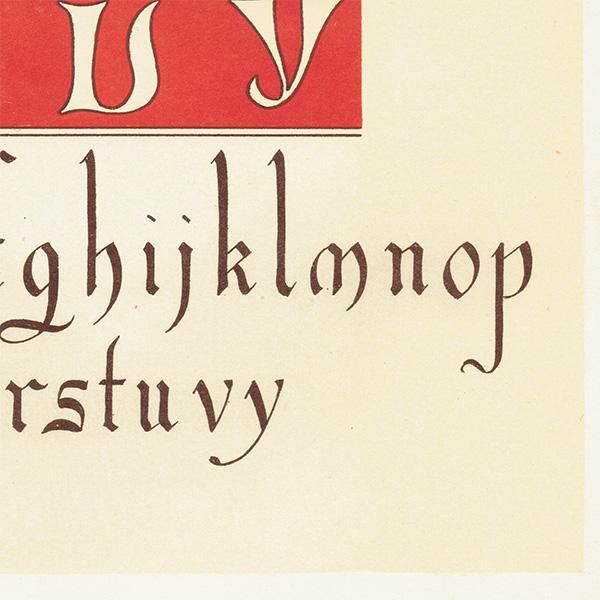 U Y
ghijklmnop
rstuvy